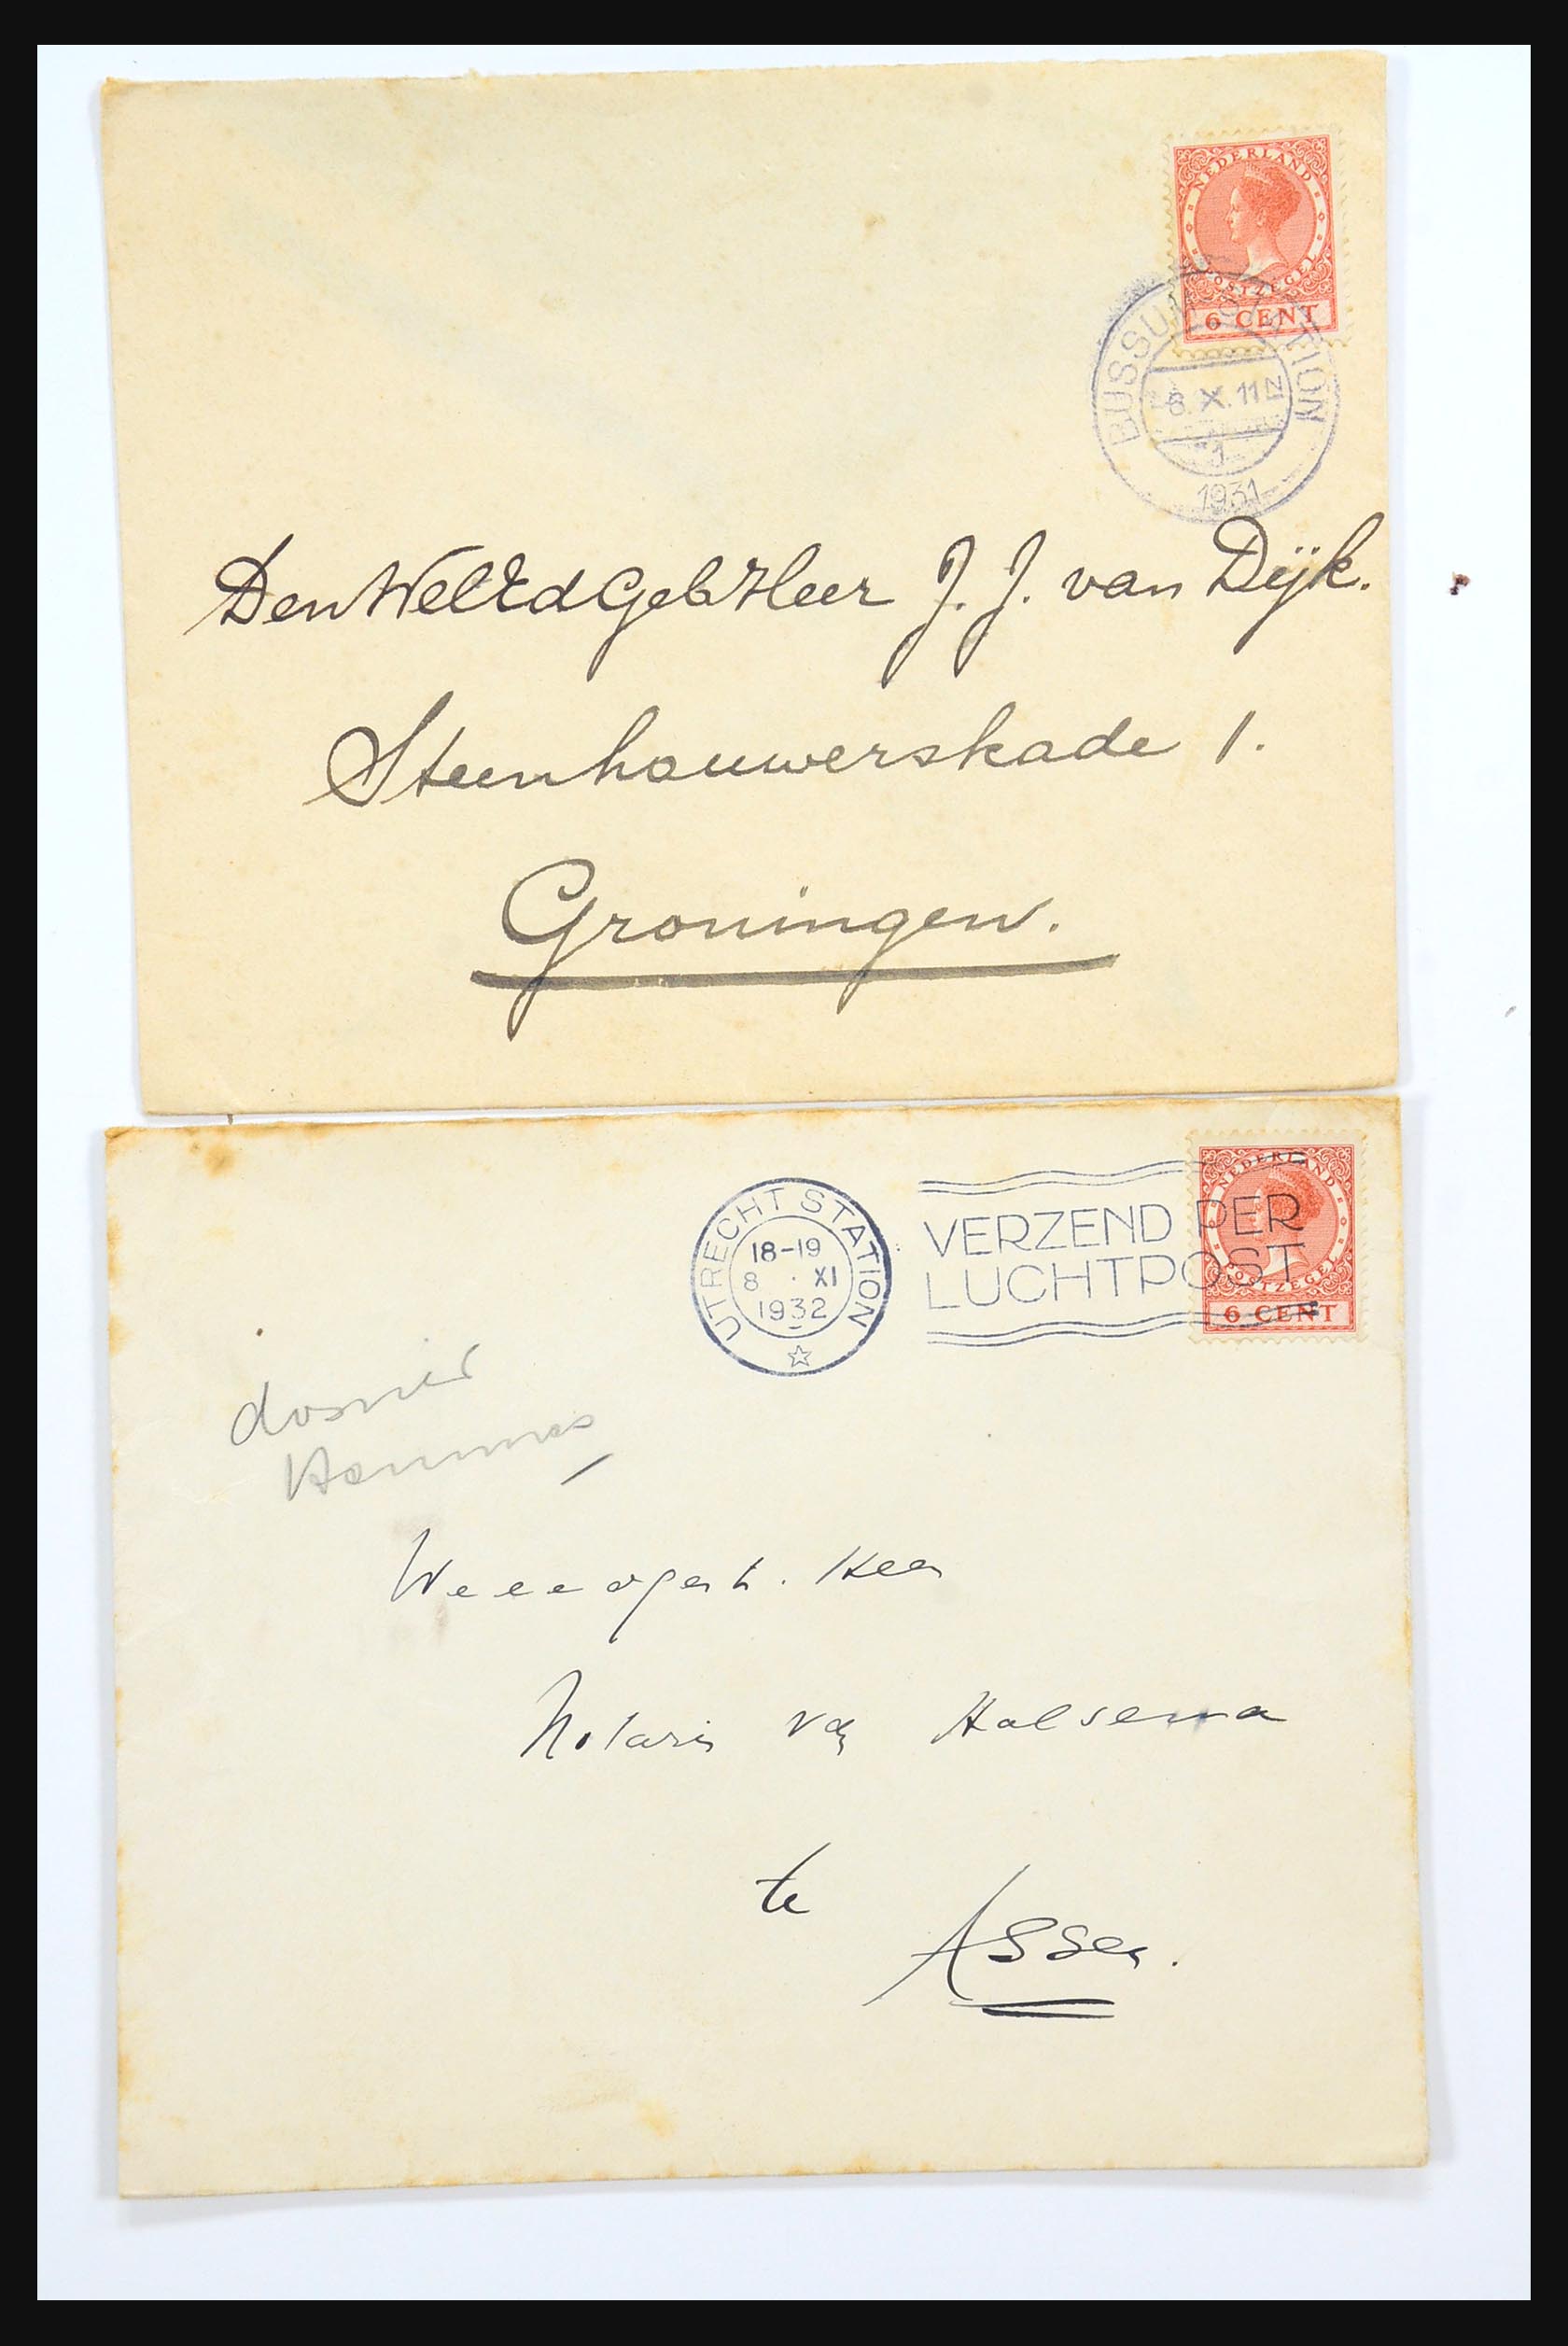 NEDERLAND
POSTZEGEL
6 CENT
BUSSUM STATION
8.X.11N
1
1931
Den WelEdGeb Heer J. J. van Dijk.
Steenhouwerskade 1.
Groningen.
NEDERLAND
POSTZEGEL
6 CENT
UTRECHT STATION
18-19
8 XI
1932
VERZEND PER
LUCHTPOST
dossier
Weledgestr. Heer
Notaris van Halsema
te
Assen.